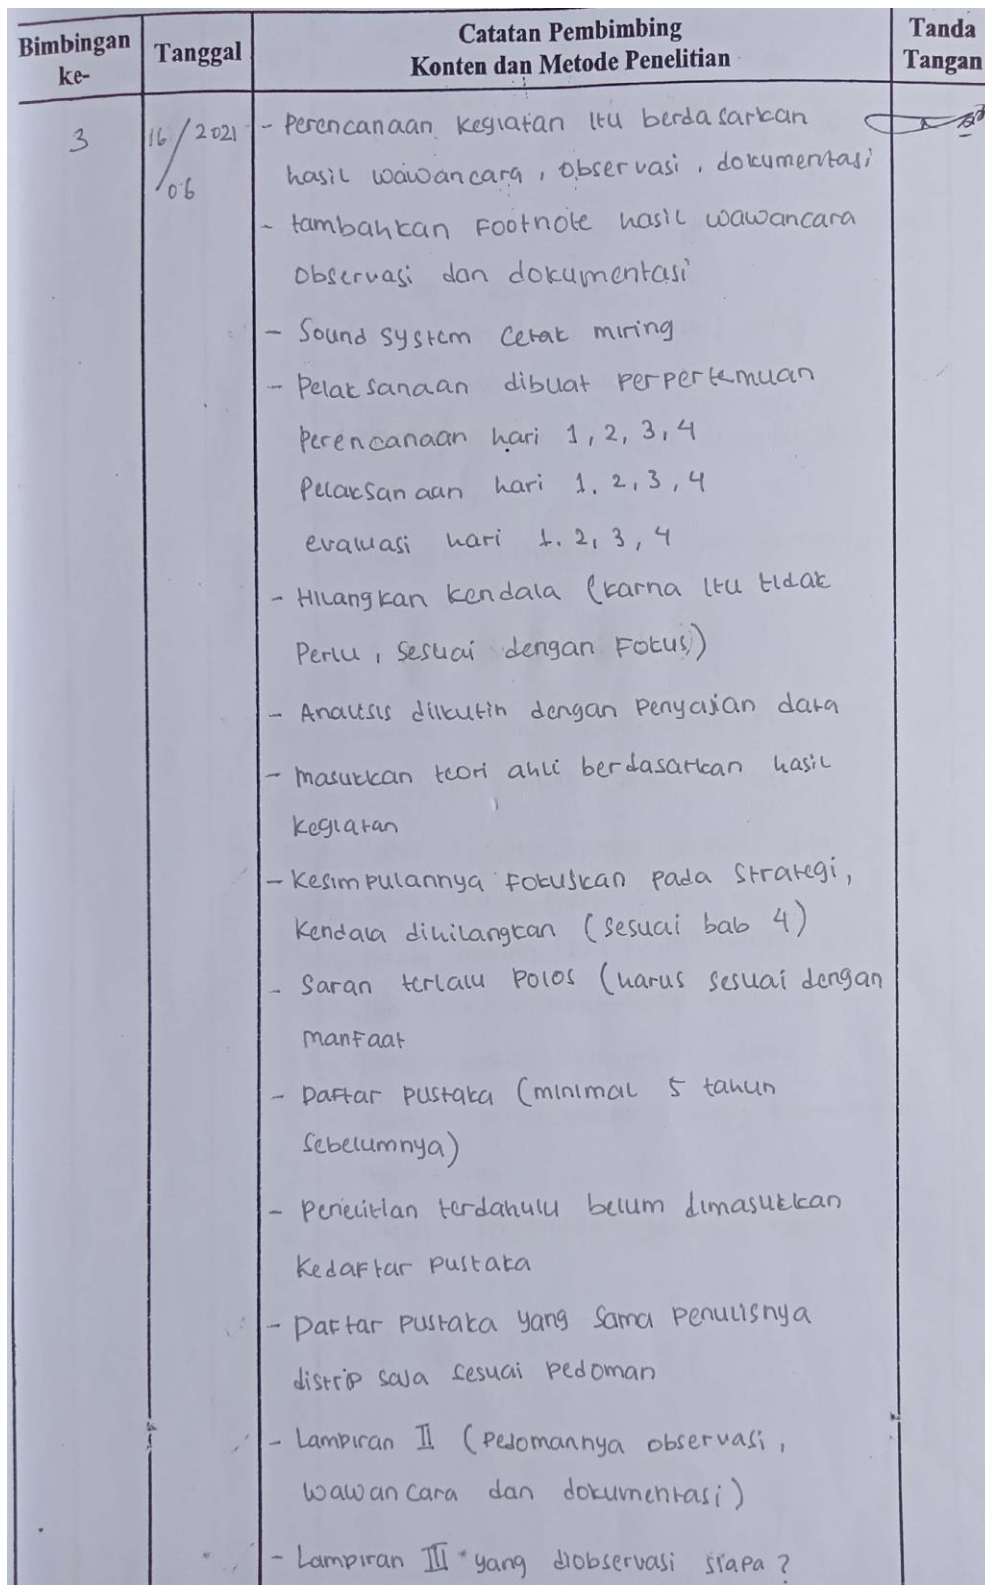 Bimbingan ke-
Tanggal
Catatan Pembimbing
Konten dan Metode Penelitian
Tanda Tangan
3
16/06 2021
- Perencanaan kegiatan itu berdasarkan
hasil wawancara, observasi, dokumentasi
- tambahkan Footnote hasil wawancara
observasi dan dokumentasi
- Sound system cetak miring
- Pelaksanaan dibuat perpertemuan
Perencanaan hari 1, 2, 3, 4
Pelaksanaan hari 1. 2, 3, 4
evaluasi hari 1. 2, 3, 4
- Hilangkan kendala (karna itu tidak
Perlu, sesuai dengan Fokus)
- Analisis diikutin dengan Penyajian data
- masukkan teori ahli berdasarkan hasil
kegiatan
- Kesimpulannya Fokuskan pada Strategi,
kendala dihilangkan (sesuai bab 4)
- Saran terlalu Polos (harus sesuai dengan
manfaat
- Daftar pustaka (minimal 5 tahun
sebelumnya)
- Penelitian terdahulu belum dimasukkan
kedaftar pustaka
- Daftar pustaka yang sama penulisnya
distrip saja sesuai pedoman
- Lampiran II (Pedomannya observasi,
wawancara dan dokumentasi)
- Lampiran III yang diobservasi siapa?